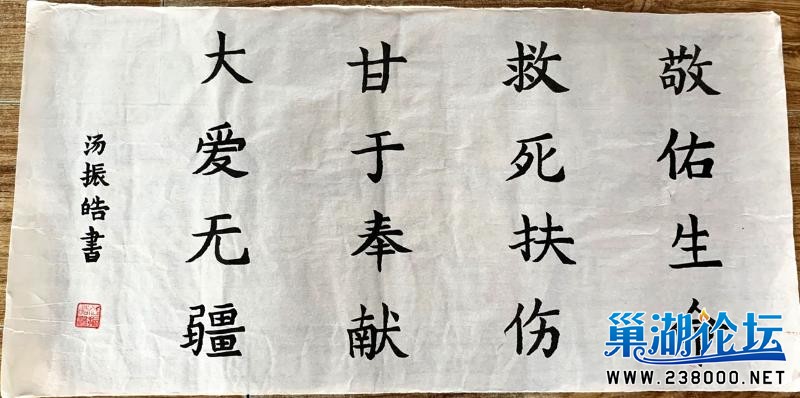 敬佑生命
救死扶伤
甘于奉献
大爱无疆
汤振皓書
巢湖论坛
WWW.238000.NET